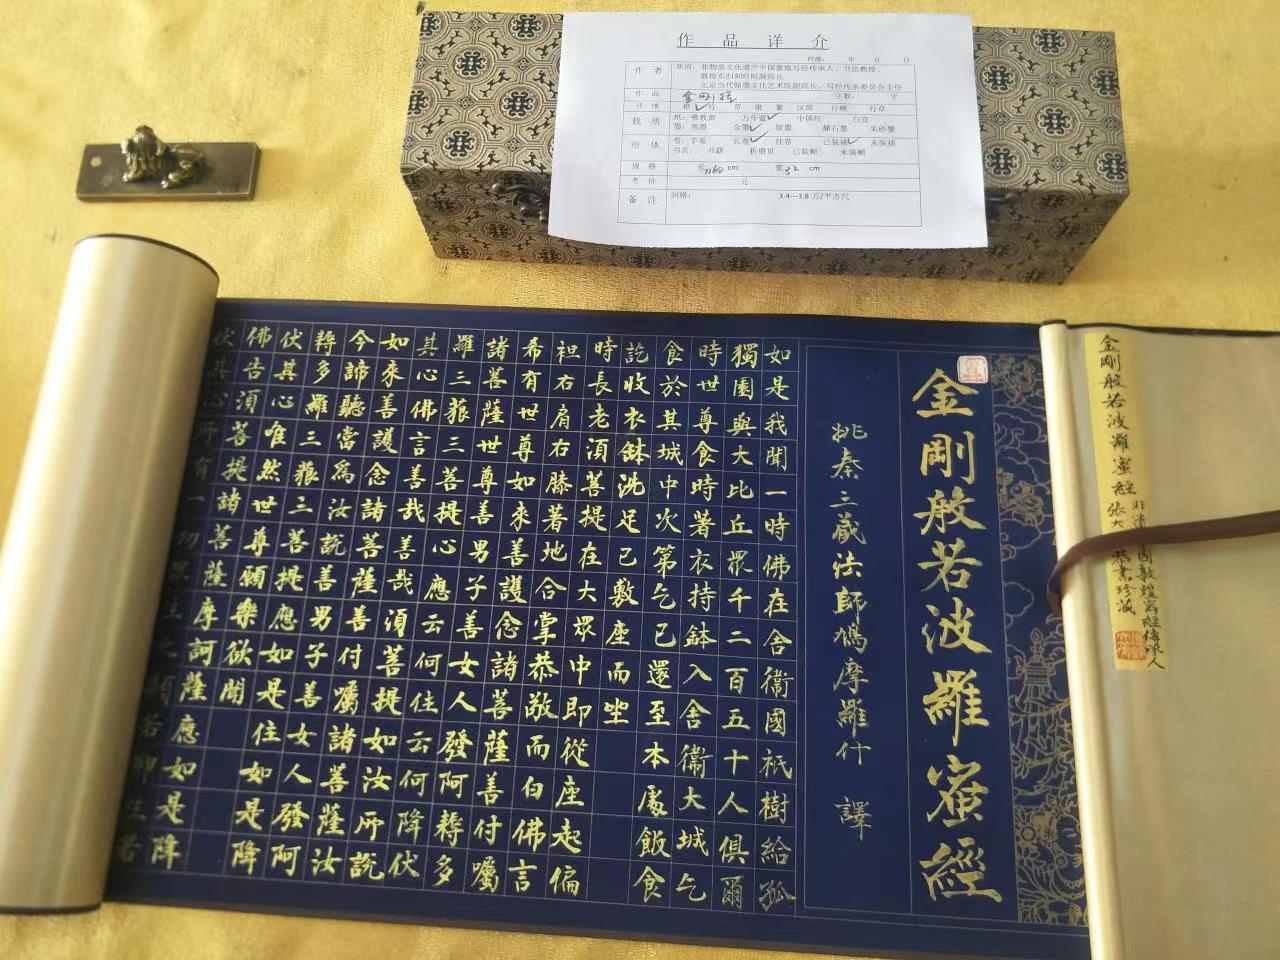 作品详介
时维： 年 月 日
作者
非物质文化遗产中国敦煌写经传承人、书法教授、
敦煌东归刻经院副院长
北京当代翰墨文化艺术院副院长、写经传承委员会主任
作品 金刚经 字数： 字
书体 楷 行 草 隶 篆 汉简 行楷 行草
载质 纸：佛教黄 万年蓝 中国红 白宣
墨：黑墨 金墨 银墨 赭石墨 朱砂墨
形体 卷：手卷 长卷 挂卷 已装裱 未装裱
书页： 书籍 折册页 已装帧 未装帧
规格 长1160cm 宽32cm
考价 元
备注 润格： 3.4—3.8 万/平方尺
金剛般若波羅蜜經
金剛般若波羅蜜經
姚秦三藏法師鳩摩羅什 譯
如是我聞一時佛在舍衞國祇樹給孤
獨園與大比丘眾千二百五十人俱爾
時世尊食時著衣持鉢入舍衞大城乞
食於其城中次第乞已還至本處飯食
訖收衣鉢洗足已敷座而坐
時長老須菩提在大眾中即從座起偏
袒右肩右膝著地合掌恭敬而白佛言
希有世尊如來善護念諸菩薩善付囑
諸菩薩世尊善男子善女人發阿耨多
羅三藐三菩提心應云何住云何降伏
其心佛言善哉善哉須菩提如汝所說
如來善護念諸菩薩善付囑諸菩薩汝
今諦聽當為汝說善男子善女人發阿
耨多羅三藐三菩提應如是住如是降
伏其心唯然世尊願樂欲聞
佛告須菩提諸菩薩摩訶薩應如是降
伏其心所有一切眾生之類若卵生若